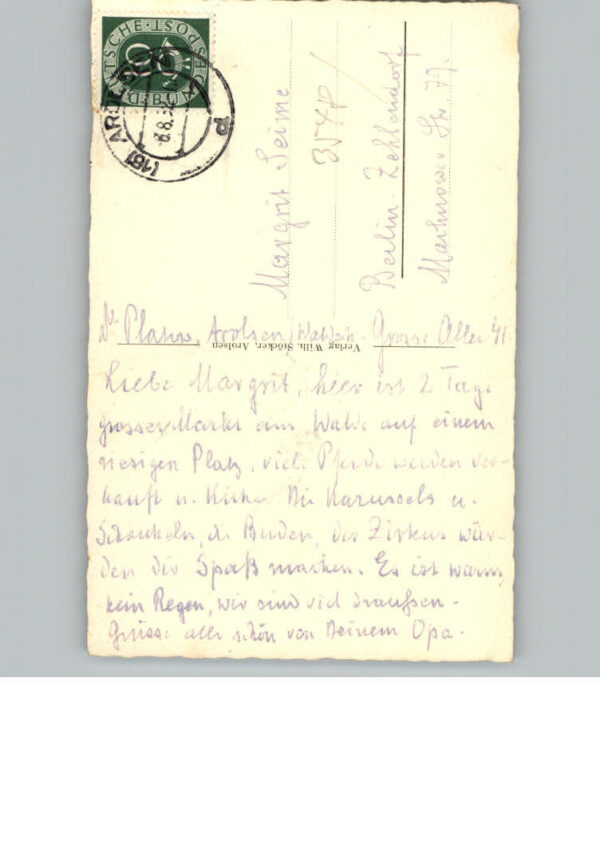 DEUTSCHE BUNDESPOST
10
(16) AROLSEN
Margrit Seime
Berlin Zehlendorf
Machnower Str. 79.
Arolsen Grosse Allee 41
Verlag Wilh. Stöcker, Arolsen
Liebe Margrit, hier ist 2 Tage
grosser Markt am Walde auf einem
riesigen Platz, viele Pferde werden ver-
kauft u. Kühe. Die Karussels u.
Schaukeln, die Buden, der Zirkus wür-
den dir Spaß machen. Es ist warm
kein Regen, wir sind viel draussen.
Grüsse alle schön von Deinem Opa.